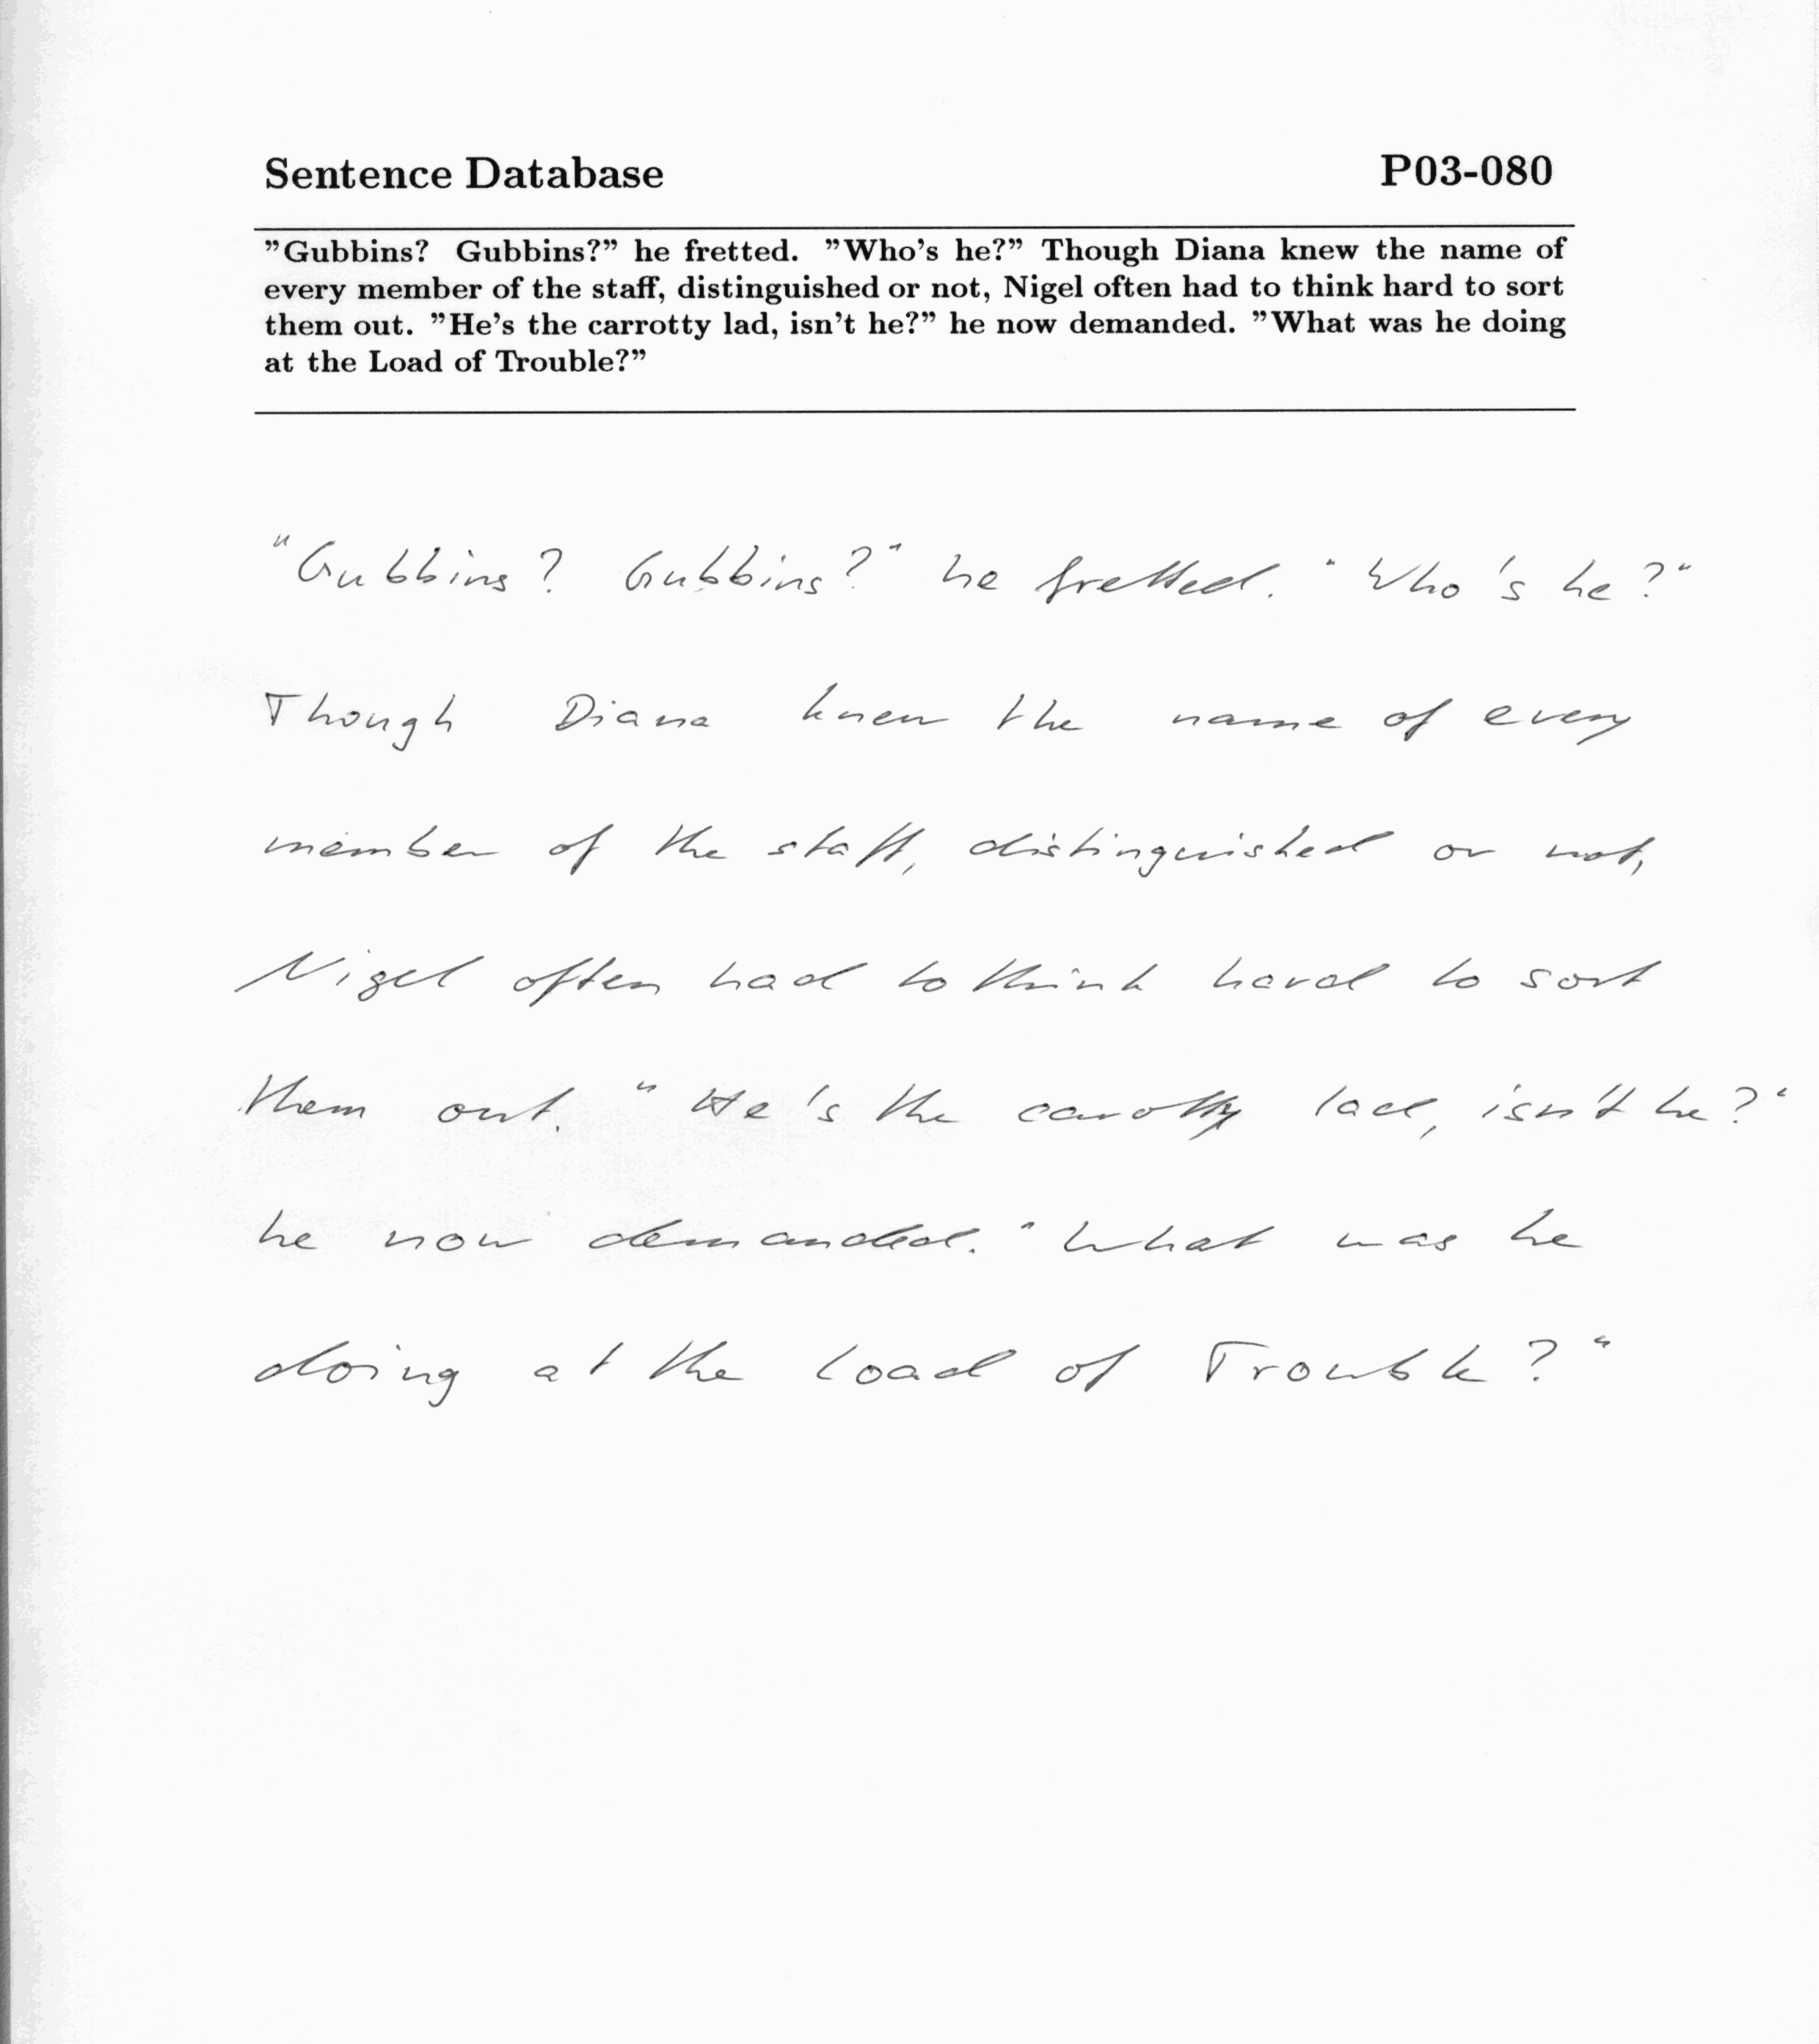 Sentence Database P03-080
"Gubbins? Gubbins?" he fretted. "Who's he?" Though Diana knew the name of
every member of the staff, distinguished or not, Nigel often had to think hard to sort
them out. "He's the carrotty lad, isn't he?" he now demanded. "What was he doing
at the Load of Trouble?"
"Gubbins? Gubbins?" he fretted. "Who's he?"
Though Diana knew the name of every
member of the staff, distinguished or not,
Nigel often had to think hard to sort
them out. "He's the carotty lad, isn't he?"
he now demanded. "What was he
doing at the Load of Trouble?"